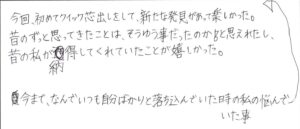 今回、初めてクイック芯出しをして、新たな発見があって楽しかった。
昔のずっと思ってきたことは、そうゆう事だったのかなと思えれたし、
昔の私が納得してくれていたことが嬉しかった。
今まで、なんでいつも自分ばかりと落ち込んでいた時の私の悩んで
いた事